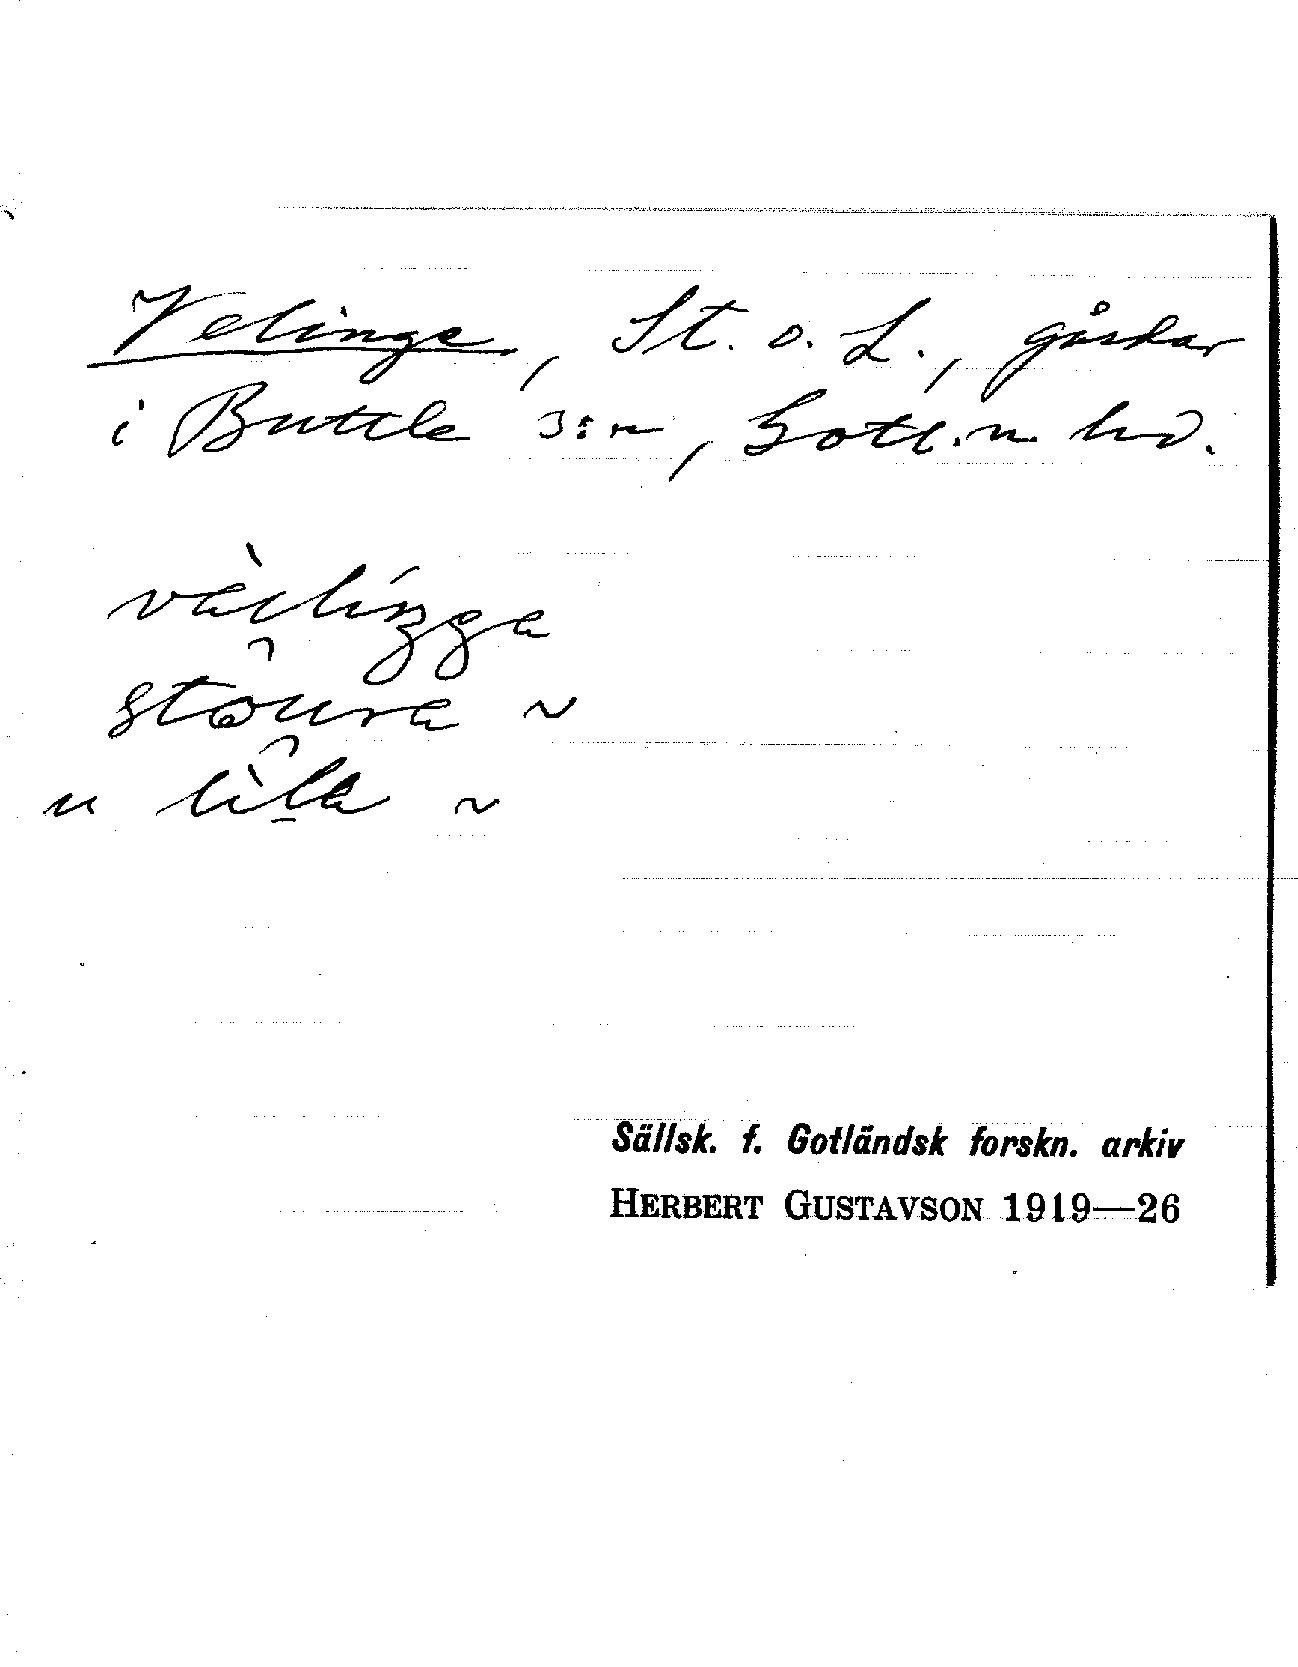 Velinge, St. o. L., gårdar
i Buttle s:n, Gotl. n. hd.
väilingga
stòura ~
u lila ~
Sällsk. f. Gotländsk forskn. arkiv
HERBERT GUSTAVSON 1919—26